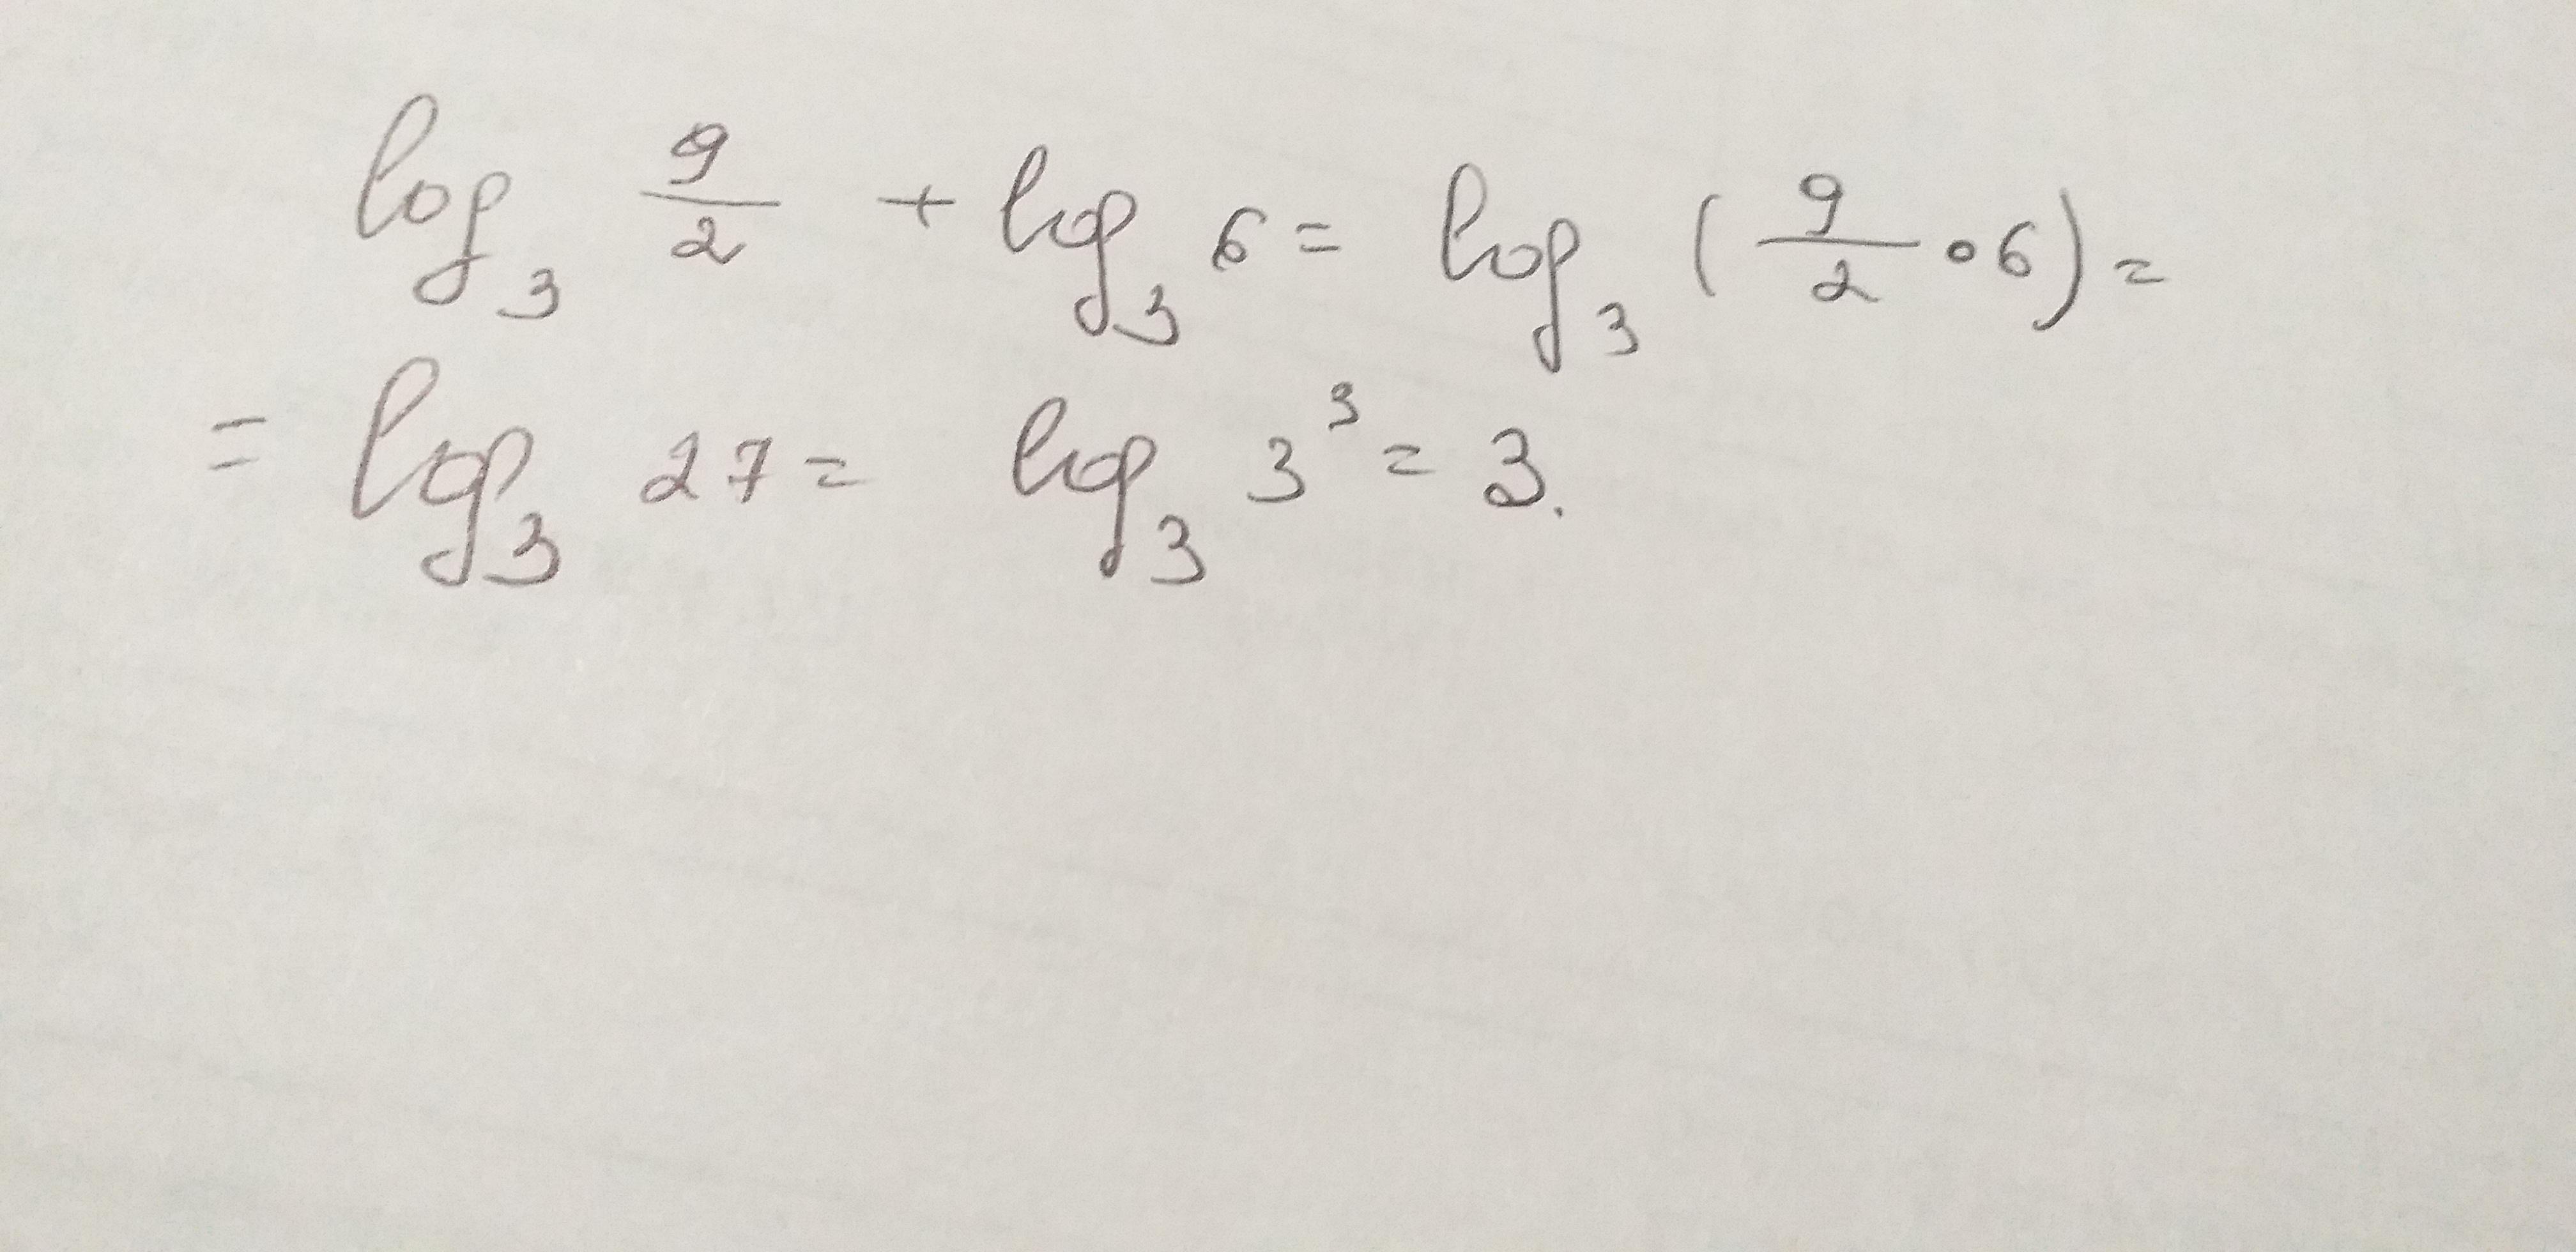 log₃ 9/2 + log₃ 6 = log₃ (9/2 · 6) =
= log₃ 27 = log₃ 3³ = 3.